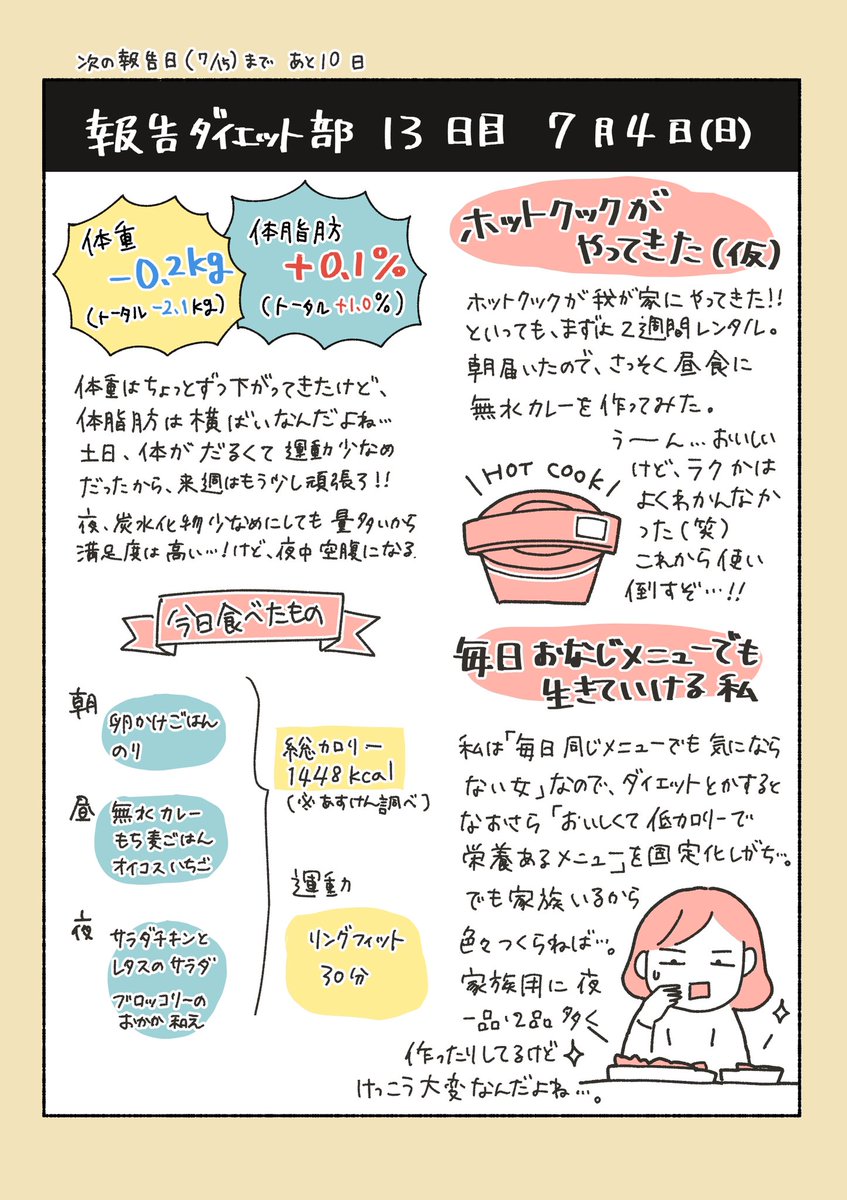 次の報告日(7/15)まで あと10日
報告ダイエット部 13日目 7月4日(日)
体重
-0.2kg
(トータル-2.1kg)
体脂肪
+0.1%
(トータル+1.0%)
体重はちょっとずつ下がってきたけど、
体脂肪は横ばいなんだよね…
土日、体がだるくて運動少なめ
だったから、来週はもう少し頑張ろ!!
夜、炭水化物少なめにしても量多いから
満足度は高い…!けど、夜中空腹になる
今日食べたもの
朝
卵かけごはん
のり
昼
無水カレー
もち麦ごはん
オイコスいちご
夜
サラダチキンと
レタスのサラダ
ブロッコリーの
おかか和え
総カロリー
1448kcal
(※あすけん調べ)
運動
リングフィット
30分
ホットクックが
やってきた(仮)
ホットクックが我が家にやってきた!!
といっても、まずは2週間レンタル。
朝届いたので、さっそく昼食に
無水カレーを作ってみた。
うーん…おいしい
けど、ラクかは
よくわかんなか
った(笑)
これから使い
倒すぞ…!!
\HOT COOK/
毎日おなじメニューでも
生きていける私
私は「毎日同じメニューでも気になら
ない女」なので、ダイエットとかすると
なおさら「おいしくて低カロリーで
栄養あるメニュー」を固定化しがち…。
でも家族いるから
色々つくらねば…。
家族用に夜
一品二品多く
作ったりしてるけど
けっこう大変なんだよね…。